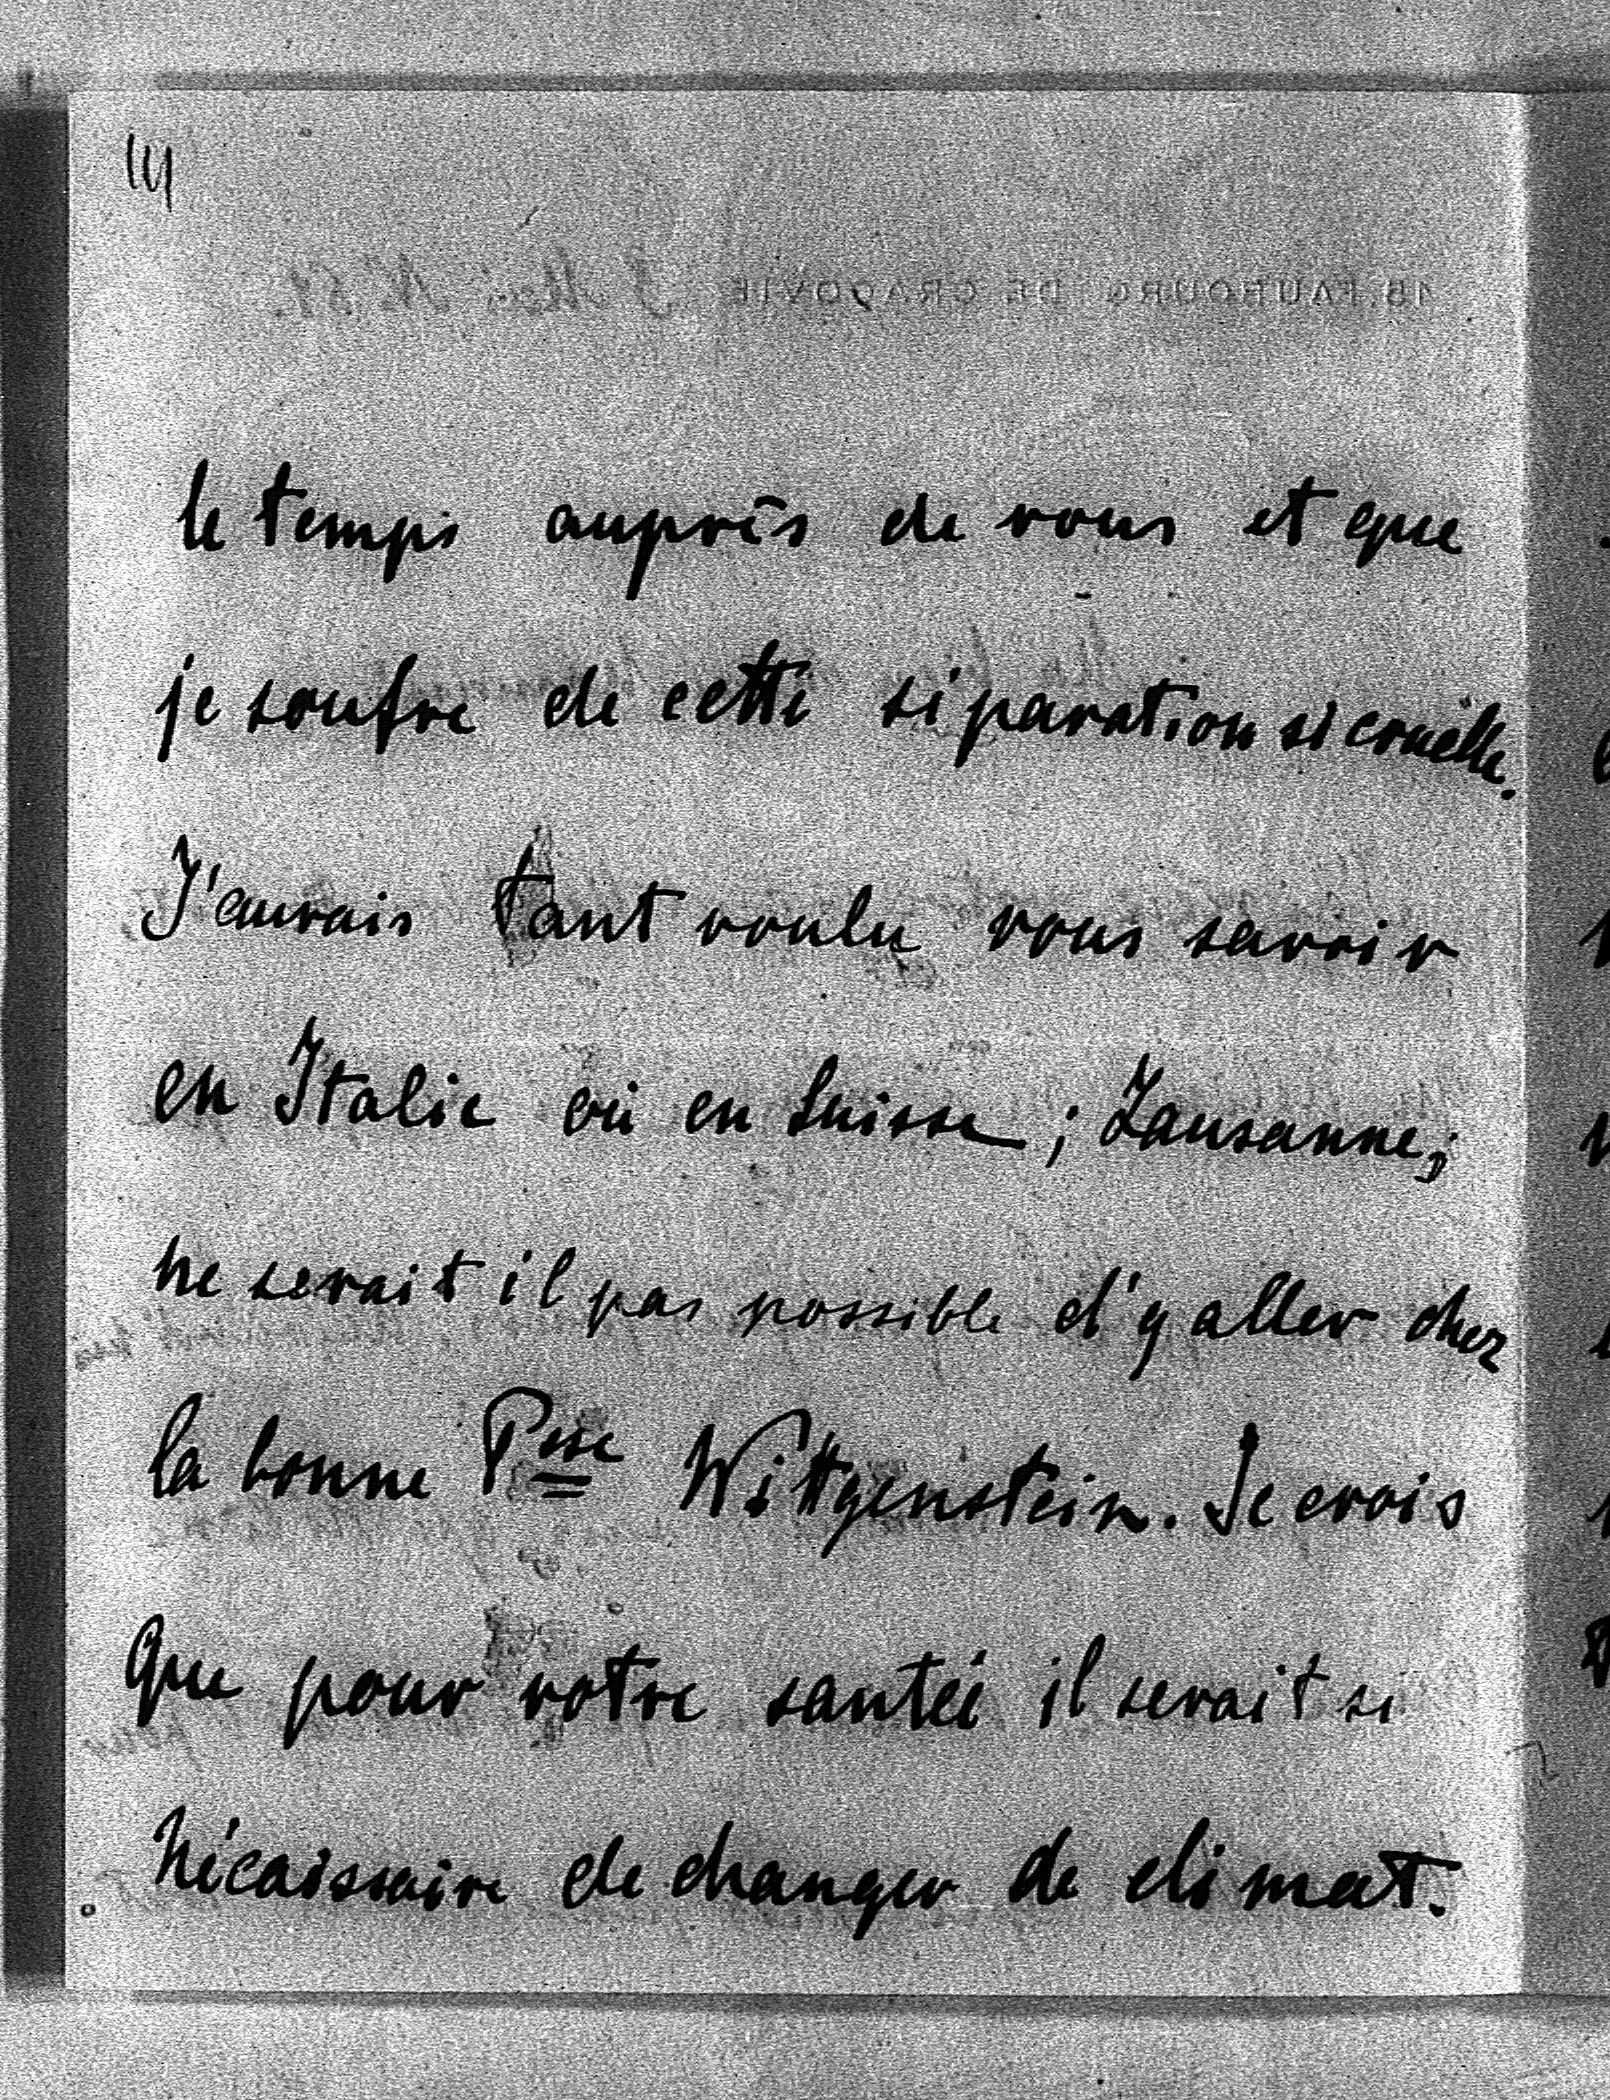 le temps auprès de vous et que
je soufre de cette séparation si cruëlle.
J'aurais tant voulu vous savoir
en Italie où en Suisse ; Lausanne ;
ne serait il pas possible d'y aller chez
la bonne Psse Wittgenstein. Je crois
que pour votre santéé il serait si
nécaissaire de changer de climat.